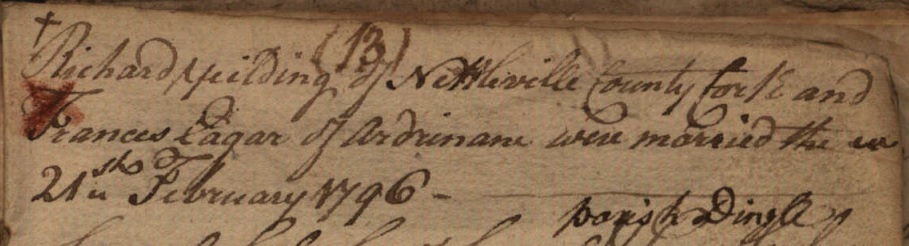 (13)
Richard yeilding of Nettleville County Cork and
Frances Eagar of Ardrinane were married the
21st February 1796 -
parish Dingle